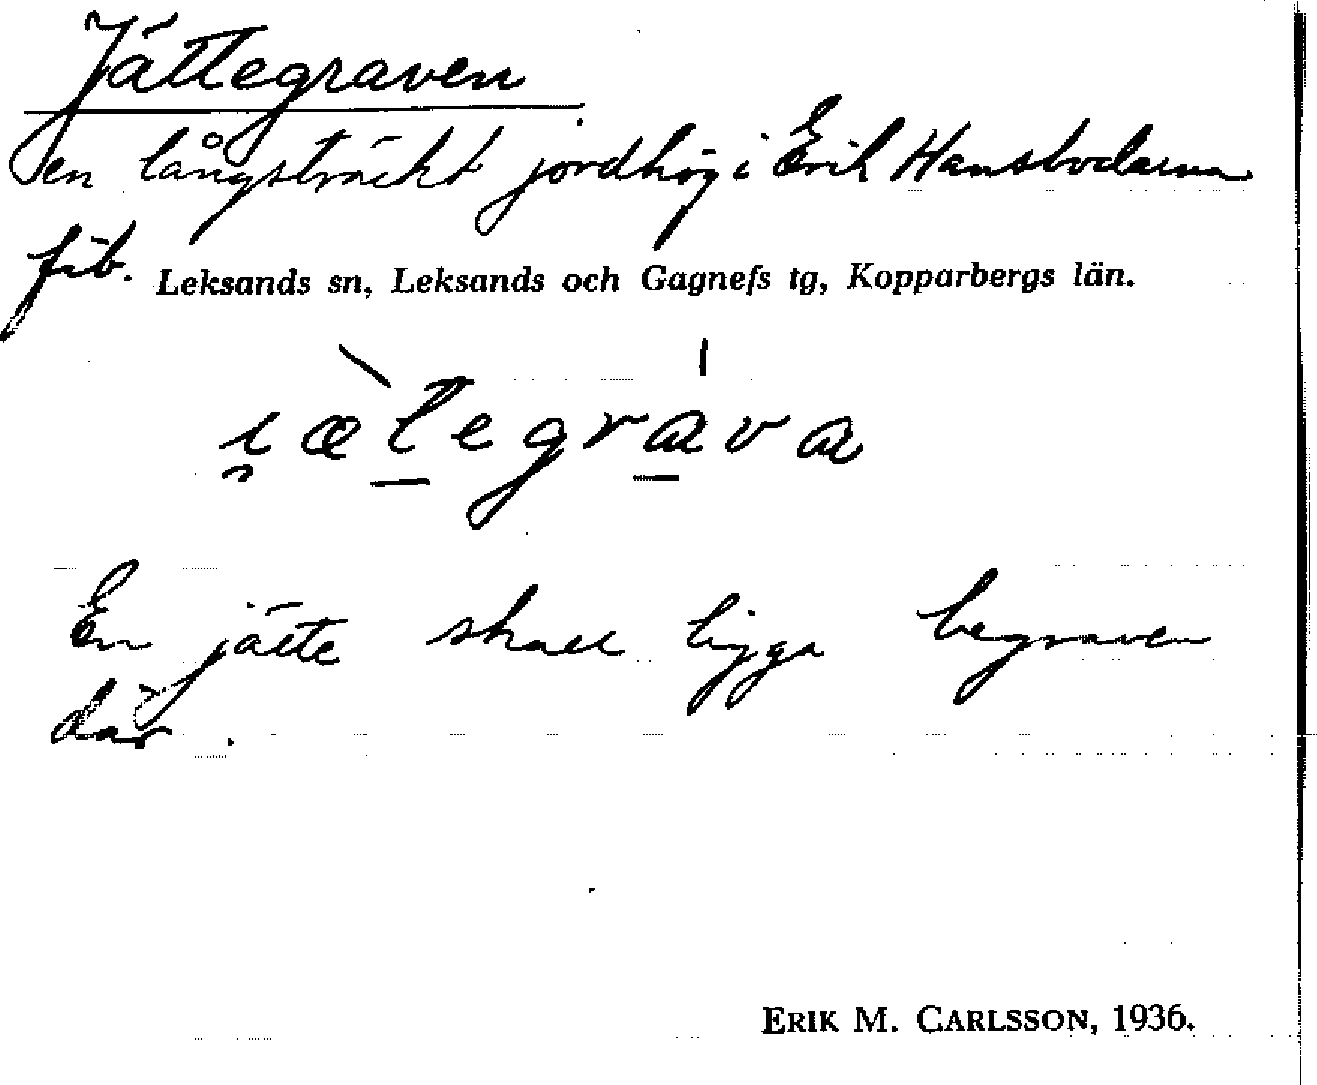 Jättegraven
en långsträckt jordhög i Erik Hansbodarna
fäb. Leksands sn, Leksands och Gagnefs tg, Kopparbergs län.
i̯æ̀t̲egra̲̍va
En jätte skall ligga begraven
där.
ERIK M. CARLSSON, 1936.